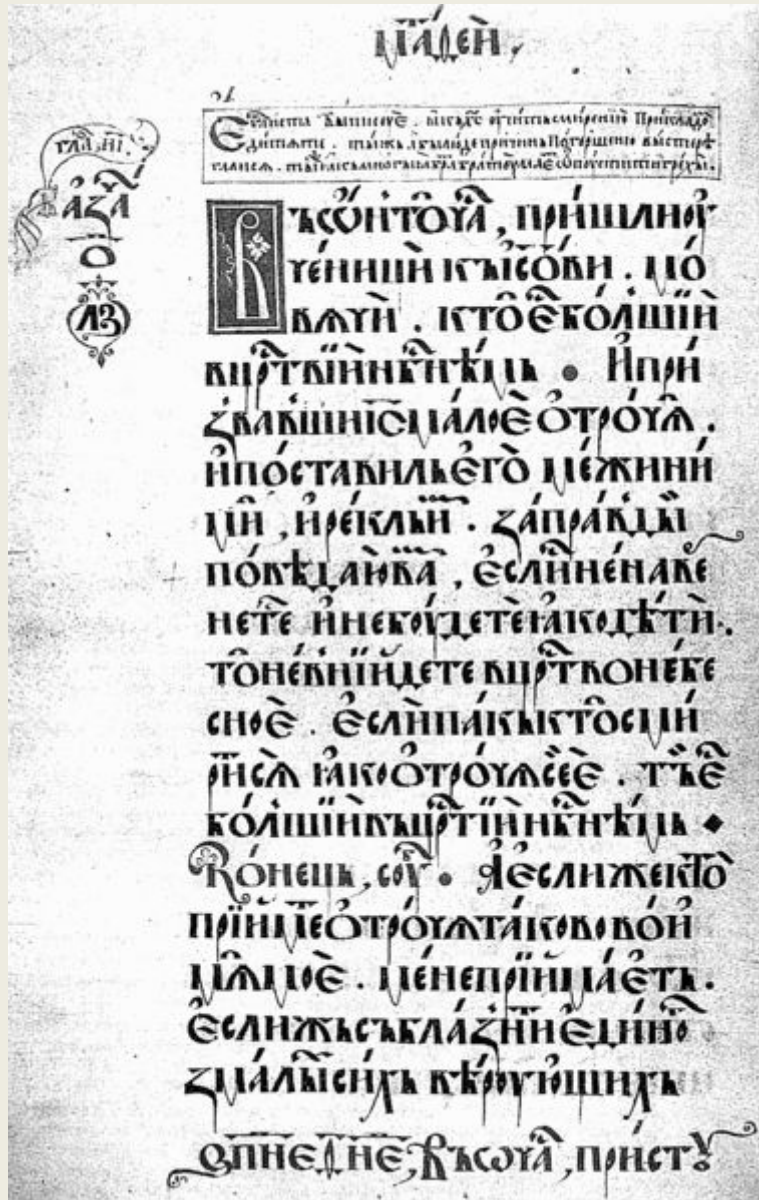 гла. и҃і.
а҆ за҆
о
л҃з
ъ ѡ҆н то҆ ча̑, пришли оу
ченици къ і҆со҆ви . мо
вѧчи . кто̑ е҆ бо́лшїй
в црⷭ҇твїи нбⷭ҇нѣмь • И҆ при
звавши і҃с малое ѻтрочѧ .
и҆ поставиль его̀ межи ни
ми , и҆ реклъ и҆м . заправды
повѣдаю ва̑ , если не наве
нете и не боудете ꙗко дѣти .
то не внїйдете в црⷭ҇тво небе
сное . если пакъ кто сми
рит сѧ ꙗко ѻтрочѧ сее . тъ е҆
болшїй въ црⷭ҇твїи нбⷭ҇нѣмь ◆
Конець, соу҇ • А если же кто
прїиме ѻтрочѧ таково во и
мѧ мое . мене прїймаеть .
если жъ съблазнит единого
з малыⷯ сихъ вѣроующихъ
в п҃не дн҃е, Въ ѡ ча̑, пристꙋ